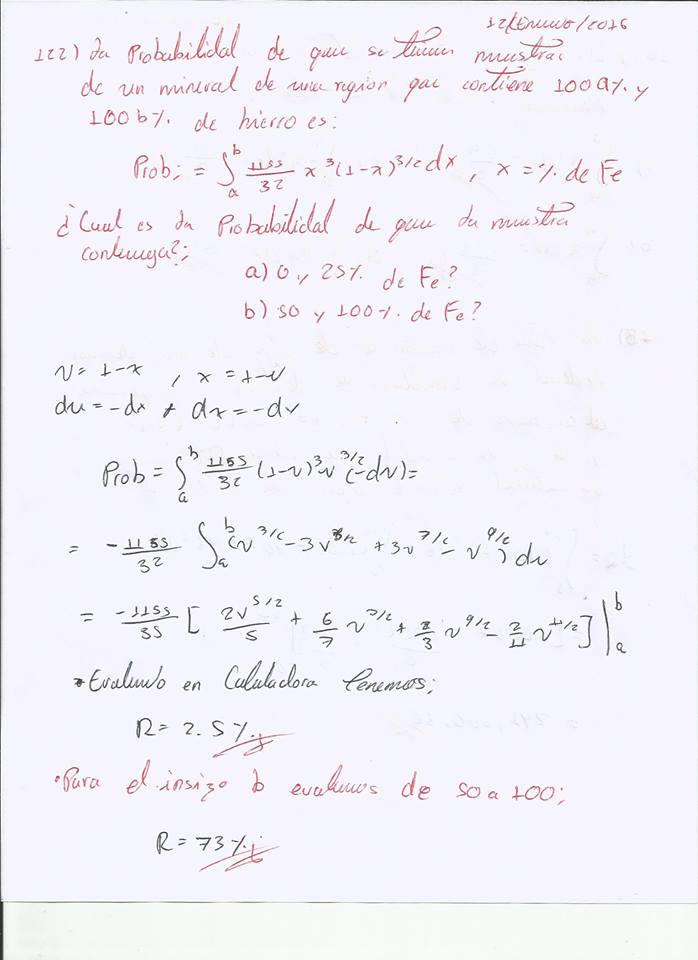 12/Enero/2016
122) La Probabilidad de que se tomen muestras
de un mineral de una region que contiene 100a% y
100b% de hierro es:
Prob; = ∫_a^b 1155/32 x^3(1-x)^{3/2} dx , x = % de Fe
¿Cual es La Probabilidad de que La muestra
contenga?;
a) 0 y 25% de Fe?
b) 50 y 100%. de Fe?
v = 1-x , x = 1-v
du = -dx , dx = -dv
Prob = ∫_a^b 1155/32 (1-v)^3 v^{3/2} (-dv) =
= -1155/32 ∫_a^b (v^{3/2} - 3v^{5/2} + 3v^{7/2} - v^{9/2}) dv
= -1155/35 [ 2v^{5/2}/5 + 6/7 v^{7/2} + 2/3 v^{9/2} - 2/11 v^{11/2} ] |_a^b
• Evaluando en Calculadora Tenemos;
R = 2.5%;
• Para el insizo b evaluamos de 50 a 100;
R = 73%;